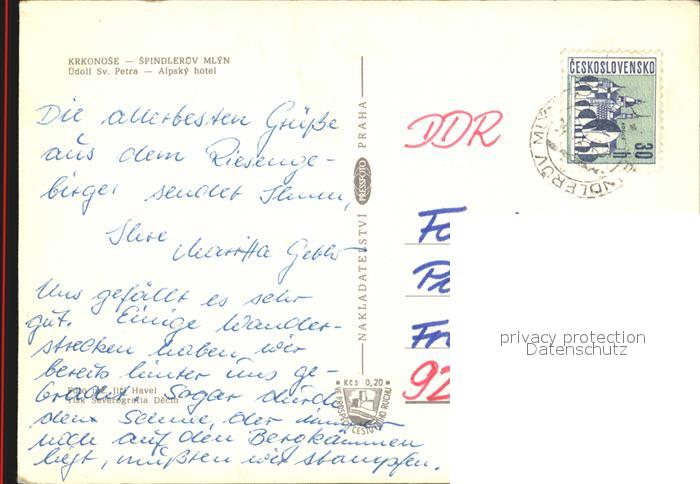 KRKONOŠE — ŠPINDLERŮV MLÝN
Údolí Sv. Petra — Alpský hotel
Die allerbesten Grüße
aus dem Riesenge-
birge sendet Ihnen,
Ihre
Maritta
Uns gefällt es sehr
gut. Einige Wander-
strecken haben wir
bereits hinter uns ge-
bracht. Sogar durch
den Schnee, der immer
noch auf den Bergkämmen
liegt, mußten wir stampfen.
Foto Jiří Havel
Tisk Severografia Děčín
NAKLADATELSTVÍ PRESSFOTO PRAHA
Kčs 0,20
DDR
ČESKOSLOVENSKO
30
h
ŠPINDLERŮV MLÝN
Fr
92
privacy protection
Datenschutz